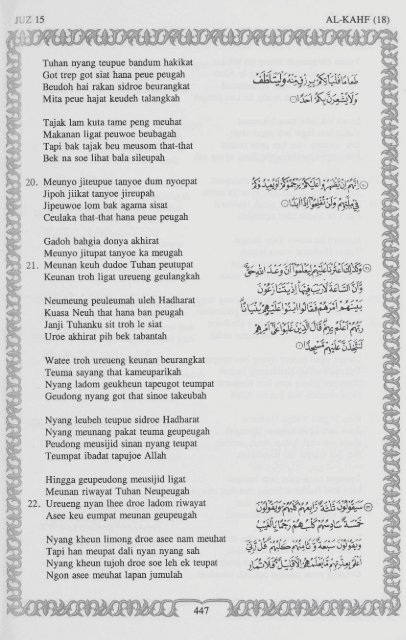 JUZ 15
AL-KAHF (18)
Tuhan nyang teupue bandum hakikat
Got trep got siat hana peue peugah
Beudoh hai rakan sidroe beurangkat
Mita peue hajat keudeh talangkah
طَعَامًا فَلْيَأْتِكُمْ بِرِزْقٍ مِنْهُ وَلْيَتَلَطَّفْ
وَلَا يُشْعِرَنَّ بِكُمْ أَحَدًا
Tajak lam kuta tame peng meuhat
Makanan ligat peuwoe beubagah
Tapi bak tajak beu meusom that-that
Bek na soe lihat bala sileupah
20. Meunyo jiteupue tanyoe dum nyoepat
Jipoh jiikat tanyoe jireupah
Jipeuwoe lom bak agama sisat
Ceulaka that-that hana peue peugah
إِنَّهُمْ إِنْ يَظْهَرُوا عَلَيْكُمْ يَرْجُمُوكُمْ أَوْ يُعِيدُوكُمْ
فِي مِلَّتِهِمْ وَلَنْ تُفْلِحُوا إِذًا أَبَدًا
Gadoh bahgia donya akhirat
Meunyo jitupat tanyoe ka meugah
21. Meunan keuh dudoe Tuhan peutupat
Keunan troh ligat ureueng geulangkah
وَكَذَٰلِكَ أَعْثَرْنَا عَلَيْهِمْ لِيَعْلَمُوا أَنَّ وَعْدَ اللَّهِ حَقٌّ
وَأَنَّ السَّاعَةَ لَا رَيْبَ فِيهَا إِذْ يَتَنَازَعُونَ
Neumeung peuleumah uleh Hadharat
Kuasa Neuh that hana ban peugah
Janji Tuhanku sit troh le siat
Uroe akhirat pih bek tabantah
بَيْنَهُمْ أَمْرَهُمْ فَقَالُوا ابْنُوا عَلَيْهِمْ بُنْيَانًا
رَبُّهُمْ أَعْلَمُ بِهِمْ قَالَ الَّذِينَ غَلَبُوا عَلَىٰ أَمْرِهِمْ
لَنَتَّخِذَنَّ عَلَيْهِمْ مَسْجِدًا
Watee troh ureueng keunan beurangkat
Teuma sayang that kameuparikah
Nyang ladom geukheun tapeugot teumpat
Geudong nyang got that sinoe takeubah
Nyang leubeh teupue sidroe Hadharat
Nyang meunang pakat teuma geupeugah
Peudong meusijid sinan nyang teupat
Teumpat ibadat tapujoe Allah
Hingga geupeudong meusijid ligat
Meunan riwayat Tuhan Neupeugah
22. Ureueng nyan lhee droe ladom riwayat
Asee keu eumpat meunan geupeugah
سَيَقُولُونَ ثَلَاثَةٌ رَابِعُهُمْ كَلْبُهُمْ وَيَقُولُونَ
خَمْسَةٌ سَادِسُهُمْ كَلْبُهُمْ رَجْمًا بِالْغَيْبِ
Nyang kheun limong droe asee nam meuhat
Tapi han meupat dali nyan nyang sah
Nyang kheun tujoh droe soe leh ek teupat
Ngon asee meuhat lapan jumulah
وَيَقُولُونَ سَبْعَةٌ وَثَامِنُهُمْ كَلْبُهُمْ قُلْ رَبِّي
أَعْلَمُ بِعِدَّتِهِمْ مَا يَعْلَمُهُمْ إِلَّا قَلِيلٌ فَلَا تُمَارِ
447